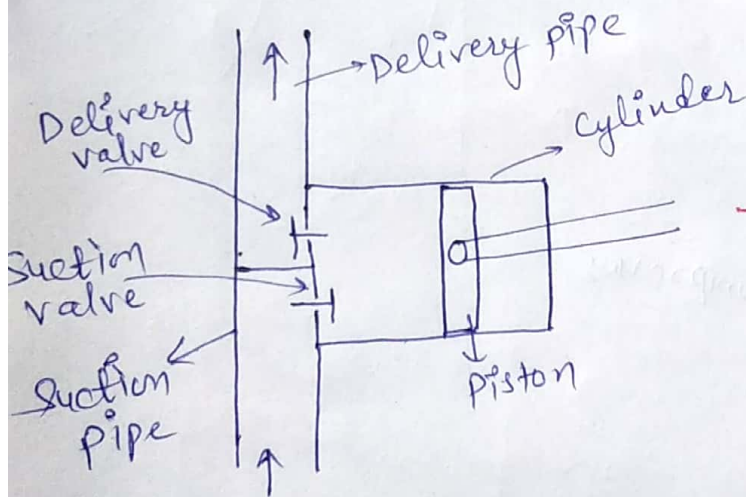 Delivery pipe
Cylinder
Delivery
valve
Suction
valve
Suction
pipe
Piston